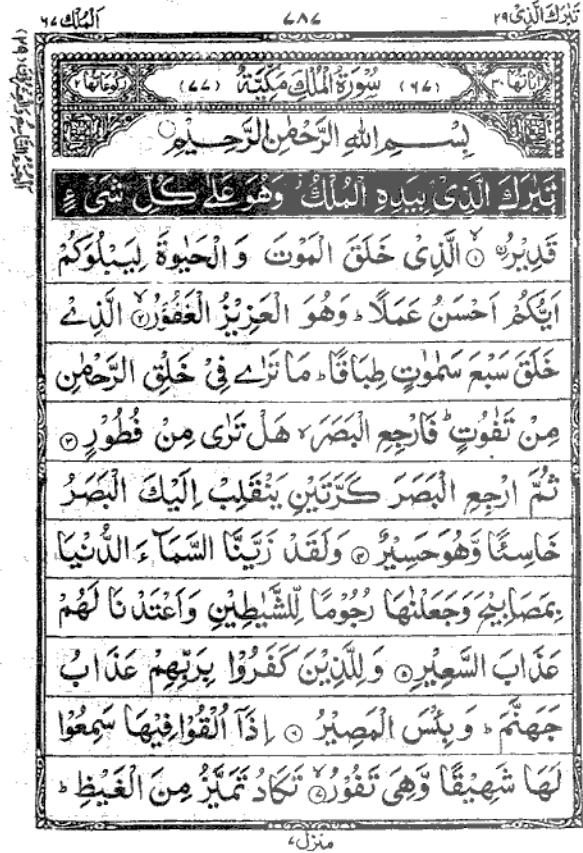 تَبٰرَكَ الَّذِیْ ٢٩ ٧٨٧ اَلْمُلْك ٦٧
اٰیَاتُهَا ٣٠ (٦٧) سُوْرَةُ الْمُلْكِ مَكِّیَّةٌ (٧٧) رُكُوْعَاتُهَا ٢
بِسْمِ اللهِ الرَّحْمٰنِ الرَّحِیْمِ
تَبٰرَكَ الَّذِیْ بِیَدِهِ الْمُلْكُ ز وَهُوَ عَلٰی كُلِّ شَیْءٍ
قَدِیْرُ ۨ ۙ ١ الَّذِیْ خَلَقَ الْمَوْتَ وَ الْحَیٰوةَ لِیَبْلُوَكُمْ
اَیُّكُمْ اَحْسَنُ عَمَلًا ؕ وَهُوَ الْعَزِیْزُ الْغَفُوْرُ ۙ ٢ الَّذِیْ
خَلَقَ سَبْعَ سَمٰوٰتٍ طِبَاقًا ؕ مَا تَرٰی فِیْ خَلْقِ الرَّحْمٰنِ
مِنْ تَفٰوُتٍ ؕ فَارْجِعِ الْبَصَرَ ۙ هَلْ تَرٰی مِنْ فُطُوْرٍ ٣
ثُمَّ ارْجِعِ الْبَصَرَ كَرَّتَیْنِ یَنْقَلِبْ اِلَیْكَ الْبَصَرُ
خَاسِئًا وَّهُوَ حَسِیْرٌ ٤ وَلَقَدْ زَیَّنَّا السَّمَآءَ الدُّنْیَا
بِمَصَابِیْحَ وَجَعَلْنٰهَا رُجُوْمًا لِّلشَّیٰطِیْنِ وَاَعْتَدْنَا لَهُمْ
عَذَابَ السَّعِیْرِ ٥ وَ لِلَّذِیْنَ كَفَرُوْا بِرَبِّهِمْ عَذَابُ
جَهَنَّمَ ؕ وَ بِئْسَ الْمَصِیْرُ ٦ اِذَاۤ اُلْقُوْا فِیْهَا سَمِعُوْا
لَهَا شَهِیْقًا وَّهِیَ تَفُوْرُ ۙ ٧ تَكَادُ تَمَیَّزُ مِنَ الْغَیْظِ ؕ
منزل ٧